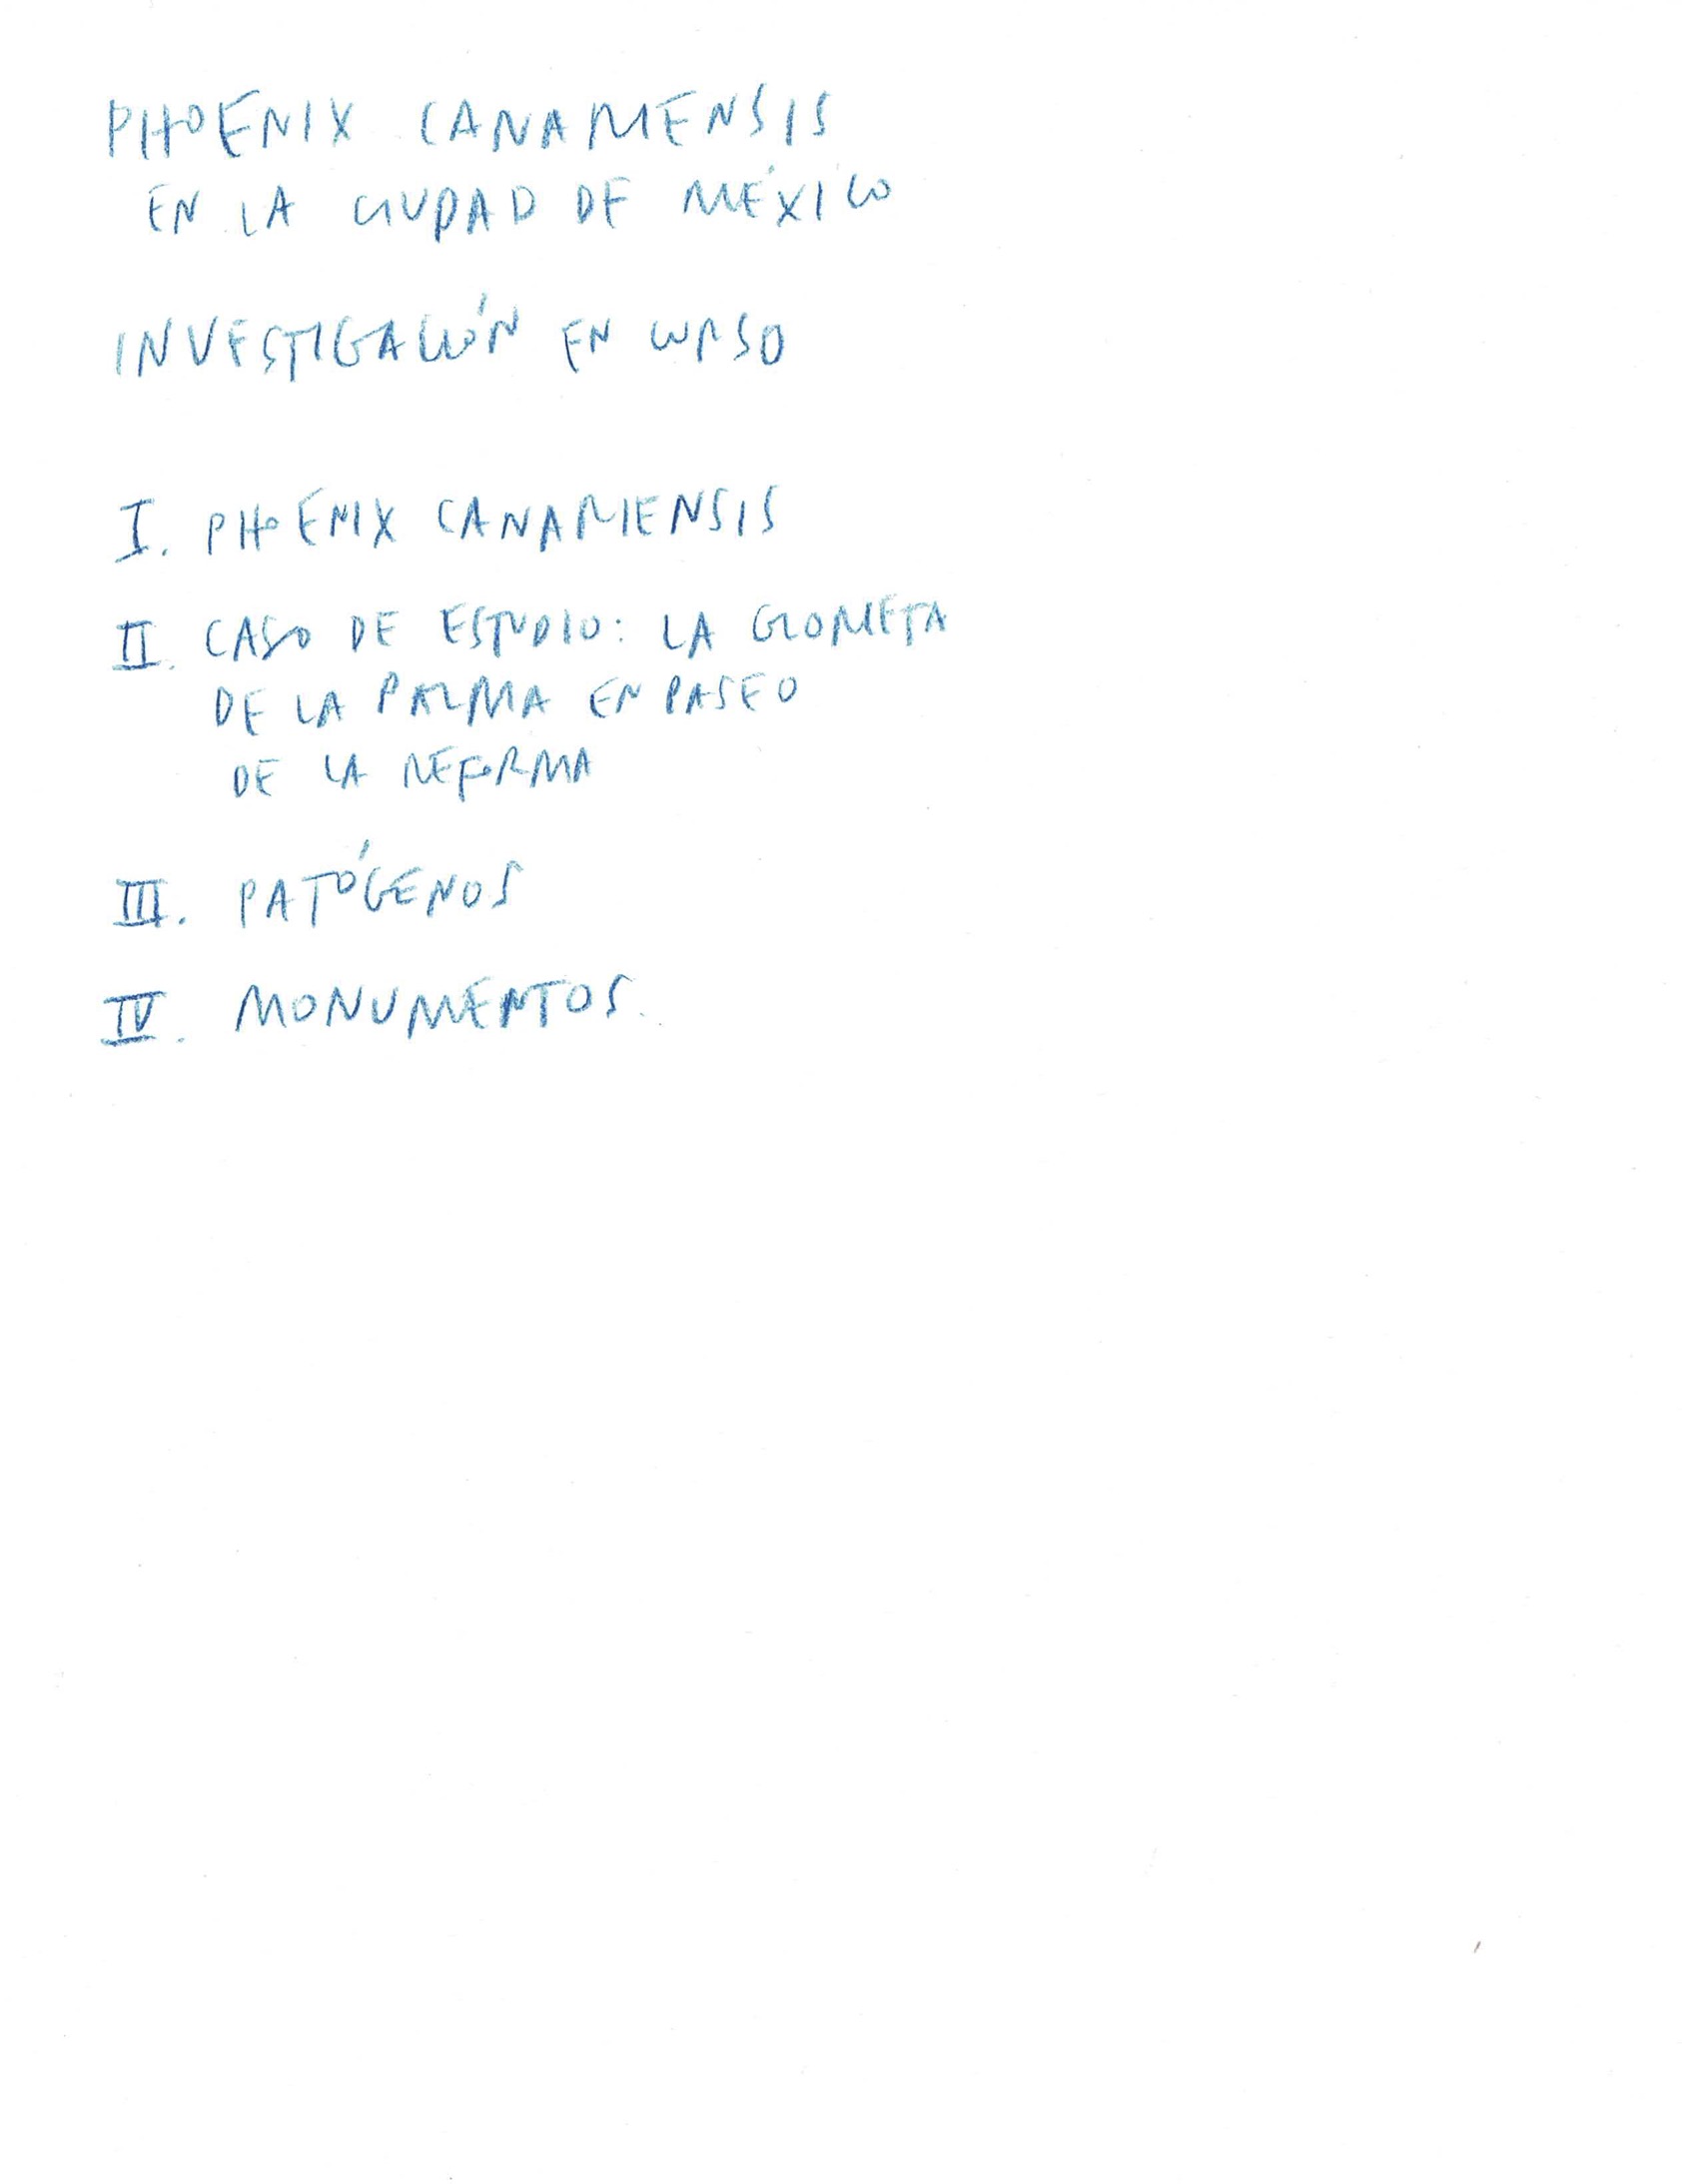 PHOENIX CANARIENSIS
EN LA CIUDAD DE MÉXICO
INVESTIGACIÓN EN CURSO
I. PHOENIX CANARIENSIS
II. CASO DE ESTUDIO: LA GLORIETA
DE LA PALMA EN PASEO
DE LA REFORMA
III. PATÓGENOS
IV. MONUMENTOS.